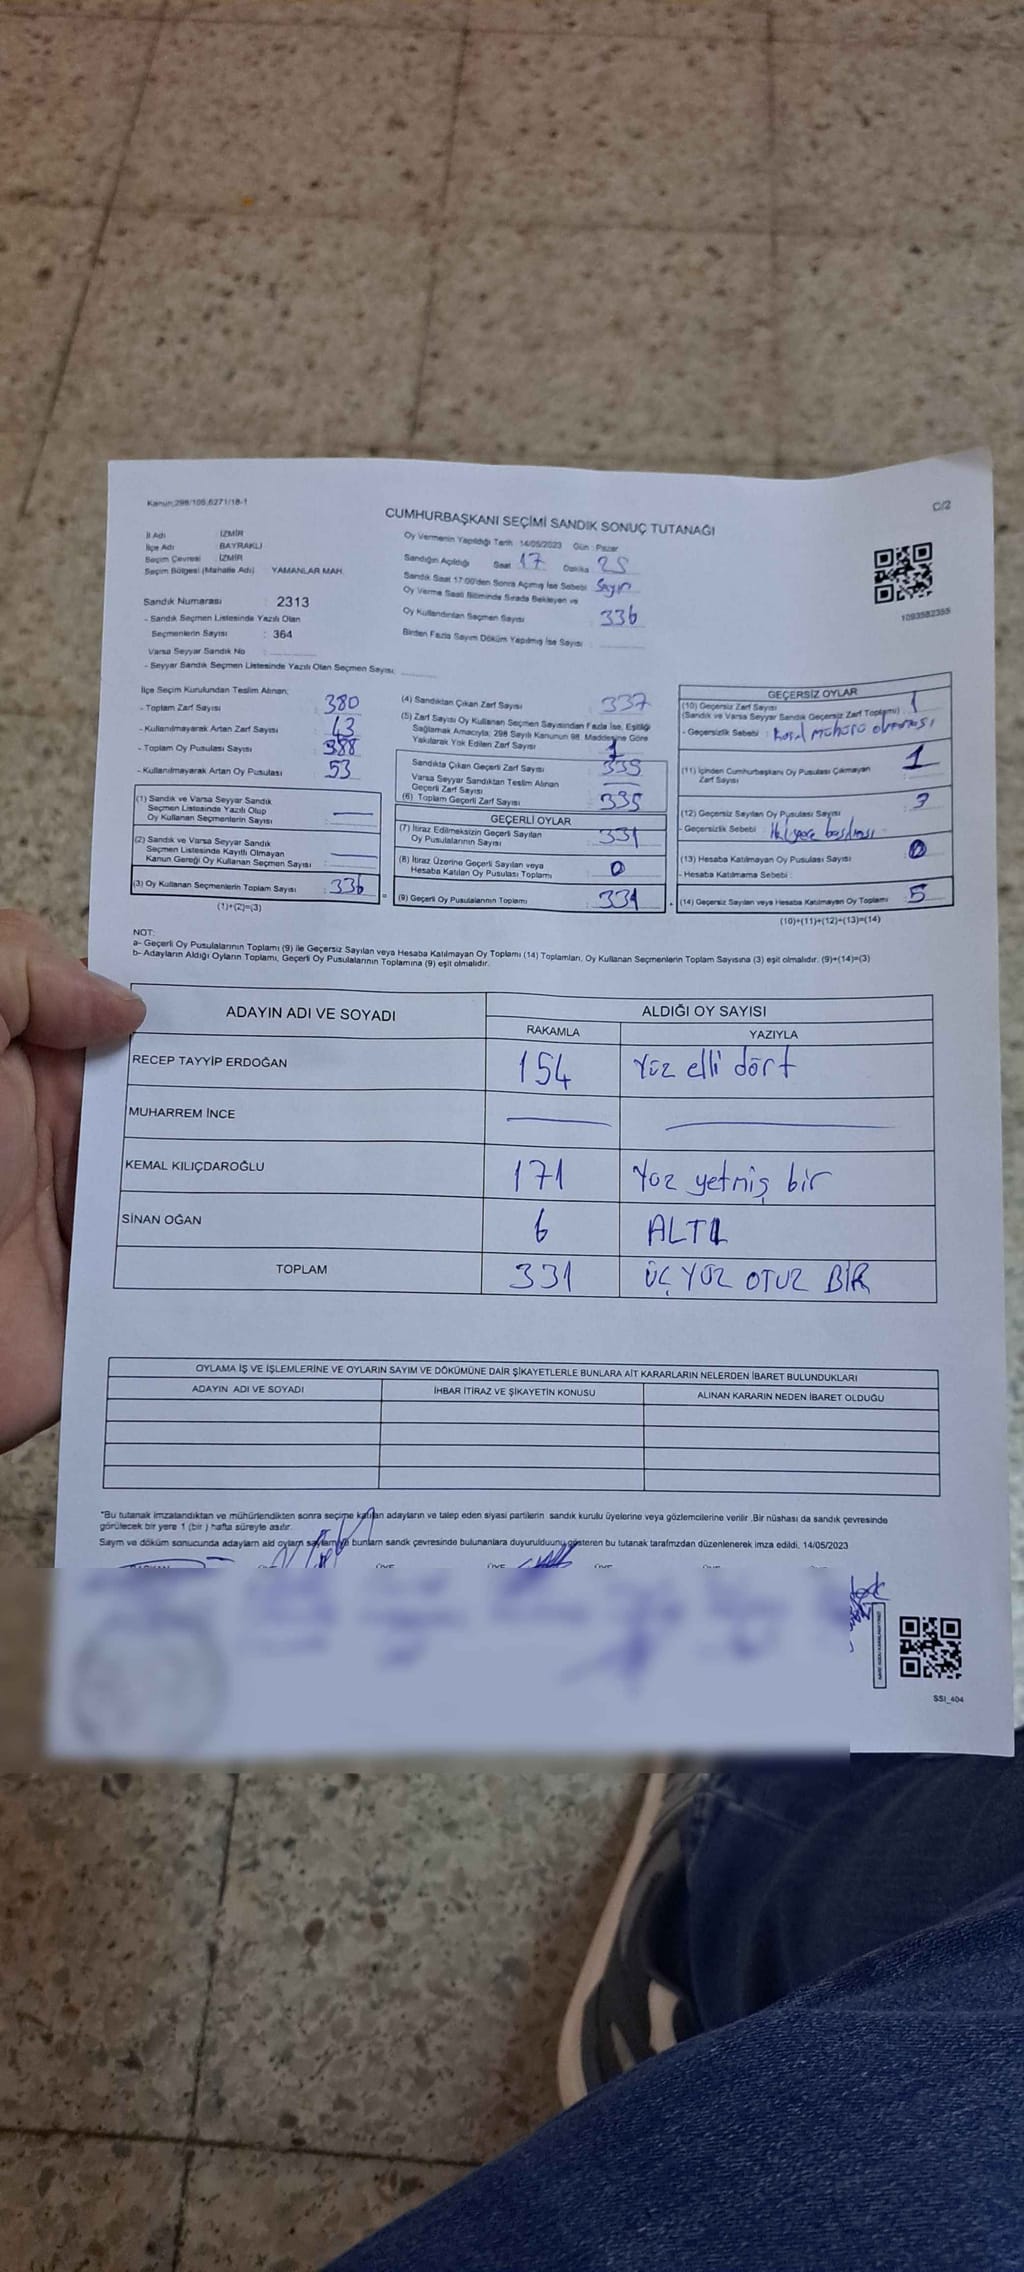 Kanun:298/105,6271/18-1
C/2
CUMHURBAŞKANI SEÇİMİ SANDIK SONUÇ TUTANAĞI
İl Adı : İZMİR
İlçe Adı : BAYRAKLI
Seçim Çevresi : İZMİR
Seçim Bölgesi (Mahalle Adı) YAMANLAR MAH.
Sandık Numarası : 2313
- Sandık Seçmen Listesinde Yazılı Olan
Seçmenlerin Sayısı : 364
Varsa Seyyar Sandık No :
- Seyyar Sandık Seçmen Listesinde Yazılı Olan Seçmen Sayısı:
Oy Vermenin Yapıldığı Tarih : 14/05/2023 Gün : Pazar
Sandığın Açıldığı Saat : 17 Dakika : 25
Sandık Saat 17:00'den Sonra Açılmış İse Sebebi :
Oy Verme Saati Bitiminde Sırada Bekleyen ve
Oy Kullandırılan Seçmen Sayısı : 336
Birden Fazla Sayım Döküm Yapılmış İse Sayısı :
1093582355
İlçe Seçim Kurulundan Teslim Alınan;
- Toplam Zarf Sayısı : 380
- Kullanılmayarak Artan Zarf Sayısı : 43
- Toplam Oy Pusulası Sayısı : 388
- Kullanılmayarak Artan Oy Pusulası : 53
(1) Sandık ve Varsa Seyyar Sandık
Seçmen Listesinde Yazılı Olup
Oy Kullanan Seçmenlerin Sayısı :
(2) Sandık ve Varsa Seyyar Sandık
Seçmen Listesinde Kayıtlı Olmayan
Kanun Gereği Oy Kullanan Seçmen Sayısı :
(3) Oy Kullanan Seçmenlerin Toplam Sayısı : 336
(1)+(2)=(3)
(4) Sandıktan Çıkan Zarf Sayısı : 337
(5) Zarf Sayısı Oy Kullanan Seçmen Sayısından Fazla İse, Eşitliği
Sağlamak Amacıyla, 298 Sayılı Kanunun 98. Maddesine Göre
Yakılarak Yok Edilen Zarf Sayısı : 1
Sandıkta Çıkan Geçerli Zarf Sayısı : 335
Varsa Seyyar Sandıktan Teslim Alınan
Geçerli Zarf Sayısı
(6) Toplam Geçerli Zarf Sayısı : 335
GEÇERLİ OYLAR
(7) İtiraz Edilmeksizin Geçerli Sayılan
Oy Pusulalarının Sayısı : 331
(8) İtiraz Üzerine Geçerli Sayılan veya
Hesaba Katılan Oy Pusulası Toplamı : 0
(9) Geçerli Oy Pusulalarının Toplamı : 331
GEÇERSİZ OYLAR
(10) Geçersiz Zarf Sayısı
(Sandık ve Varsa Seyyar Sandık Geçersiz Zarf Toplamı) : 1
- Geçersizlik Sebebi : Kurul mührü olmaması
(11) İçinden Cumhurbaşkanı Oy Pusulası Çıkmayan
Zarf Sayısı 1
(12) Geçersiz Sayılan Oy Pusulası Sayısı : 3
- Geçersizlik Sebebi :
(13) Hesaba Katılmayan Oy Pusulası Sayısı : 0
- Hesaba Katılmama Sebebi :
(14) Geçersiz Sayılan veya Hesaba Katılmayan Oy Toplamı : 5
(10)+(11)+(12)+(13)=(14)
NOT:
a- Geçerli Oy Pusulalarının Toplamı (9) ile Geçersiz Sayılan veya Hesaba Katılmayan Oy Toplamı (14) Toplamları, Oy Kullanan Seçmenlerin Toplam Sayısına (3) eşit olmalıdır. (9)+(14)=(3)
b- Adayların Aldığı Oyların Toplamı, Geçerli Oy Pusulalarının Toplamına (9) eşit olmalıdır.
ADAYIN ADI VE SOYADI
ALDIĞI OY SAYISI
RAKAMLA YAZIYLA
RECEP TAYYİP ERDOĞAN 154 Yüz elli dört
MUHARREM İNCE
KEMAL KILIÇDAROĞLU 171 Yüz yetmiş bir
SİNAN OĞAN 6 ALTI
TOPLAM 331 ÜÇ YÜZ OTUZ BİR
OYLAMA İŞ VE İŞLEMLERİNE VE OYLARIN SAYIM VE DÖKÜMÜNE DAİR ŞİKAYETLERLE BUNLARA AİT KARARLARIN NELERDEN İBARET BULUNDUKLARI
ADAYIN ADI VE SOYADI İHBAR İTİRAZ VE ŞİKAYETİN KONUSU ALINAN KARARIN NEDEN İBARET OLDUĞU
*Bu tutanak imzalandıktan ve mühürlendikten sonra seçime katılan adayların ve talep eden siyasi partilerin sandık kurulu üyelerine veya gözlemcilerine verilir .Bir nüshası da sandık çevresinde
görülecek bir yere 1 (bir ) hafta süreyle asılır.
Sayım ve döküm sonucunda adayların ald oyların bunların sandık çevresinde bulunanlara duyurulduunu gösteren bu tutanak tarafmzdan düzenlenerek imza edildi. 14/05/2023
SSI_404